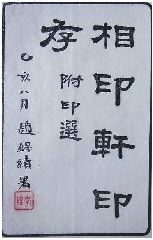 相印軒印
存
附印選
乙亥八月趙錦績署